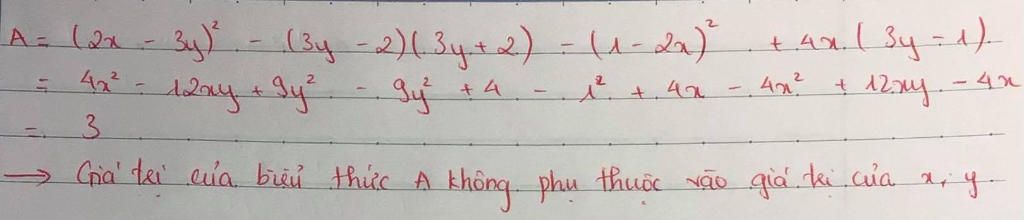 A = (2x - 3y)² - (3y - 2)(3y + 2) - (1 - 2x)² + 4x(3y - 1)
= 4x² - 12xy + 9y² - 9y² + 4 - 1² + 4x - 4x² + 12xy - 4x
= 3
→ Giá trị của biểu thức A không phụ thuộc vào giá trị của x, y